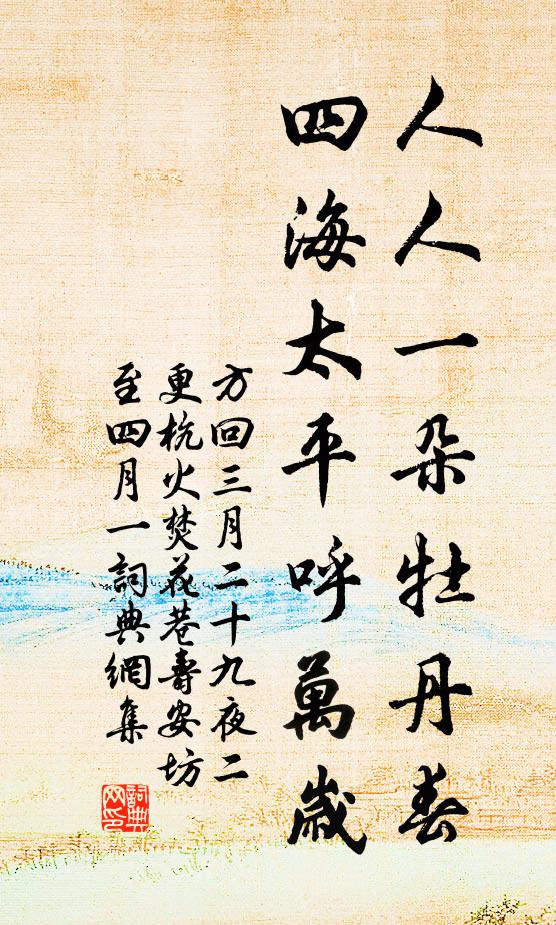 人人一朵牡丹春
四海太平呼萬歲
方回三月二十九夜二
更杭火焚花巷壽安坊
至四月一詞典網集
詞典
网印